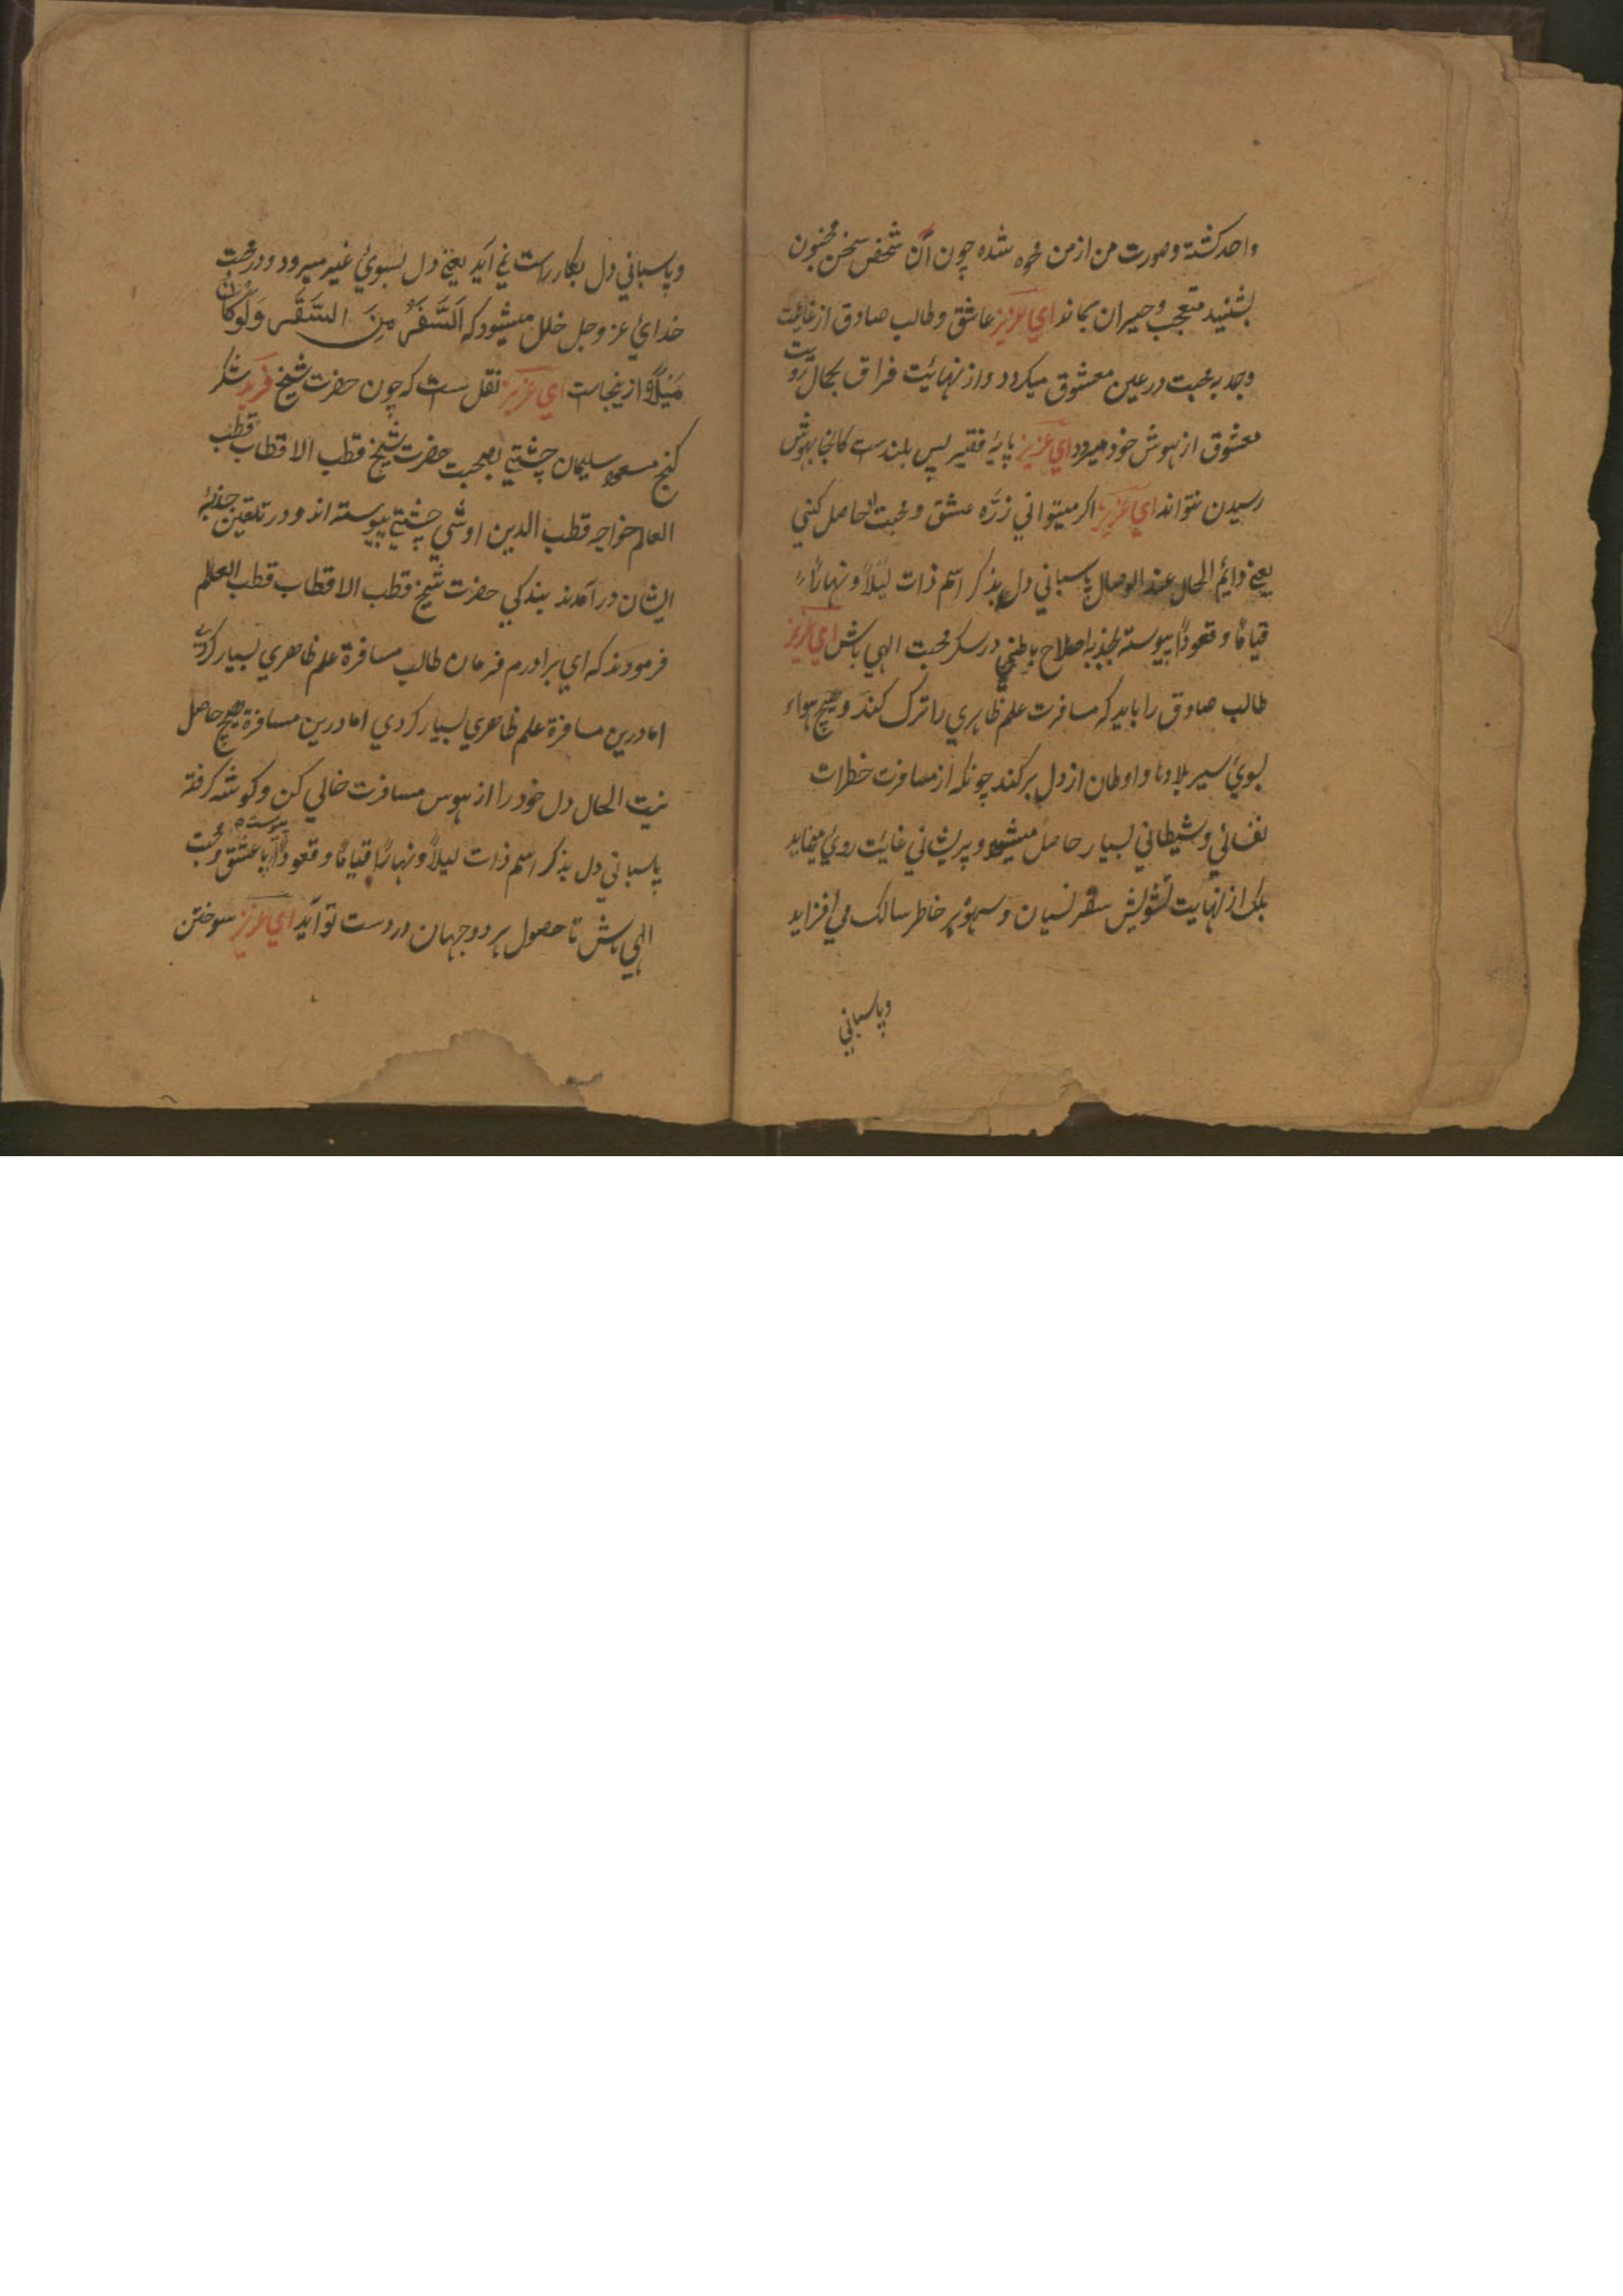 واحد كشتة وصورت من ازمن محوه شده چون آن شخص سخن مجنون
بشنيد متعجب وحيران بماند اي عزيز عاشق وطالب صادق از غايت
وجد به محبت درعين معشوق ميكردد واز نهائيت فراق بجمال رويت
معشوق از هوش خود ميرود اي عزيز پايهٔ فقير پس بلندست كانجا بهوش
رسيدن نتواند اي عزيز اكر ميتواني زرّه عشق ومحبت او حاصل كني
يعني دايم الحال عند الوصال پاسباني دل بذكر اسم ذات ليلاً ونهاراً
قياماً وقعوداً پيوسته بجذبه اصلاح باطني درسكر محبت الهي باش اي عزيز
طالب صادق را بايد كه مسافرت علم ظاهري را ترك كند وهيچ هواء
بسوئ سير بلادها واوطان از دل بركند چونكه از مسافرت خطرات
نفساني وشيطاني بسيار حاصل ميشود وپريشاني غايت روئ مينمايد
بلك از نهايت تشويش سفر نسيان وسهو بر خاطر سالك مي افزايد
وپاسباني
وپاسباني دل بكار راست نمي آيد يعني دل بسوئ غير ميرود ودر محبت
خدائ عز وجل خلل ميشود كه اَلسَّفَرُ مِنَ السَّقَر وَلَوْكَانَ
مَيْلاً ازينجاست اي عزيز نقل ست كه چون حضرت شيخ فريد شكر
كنج مسعود سليمان چشتي بصحبت حضرت شيخ قطب الاقطاب قطب
العالم خواجه قطب الدين اوشي چشتي پيوسته اند ودر تلقين جذبهٔ
ايشان درآمدند بندكي حضرت شيخ قطب الاقطاب قطب العالم
فرمودند كه اي برادرم فرمان طالب مسافرة علم ظاهري بسيار كردي
اما درين مسافرة علم ظاهري بسيار كردي اما درين مسافرة هيچ حاصل
نيت الحال دل خود را از هوس مسافرت خالي كن وكوشه كرفته
پاسباني دل بذكر اسم ذات ليلاً ونهاراً قياماً وقعوداً پيوسته با عشق ومحبت
الهي باش تا حصول هر دو جهان در دست تو آيد اي عزيز سوختن